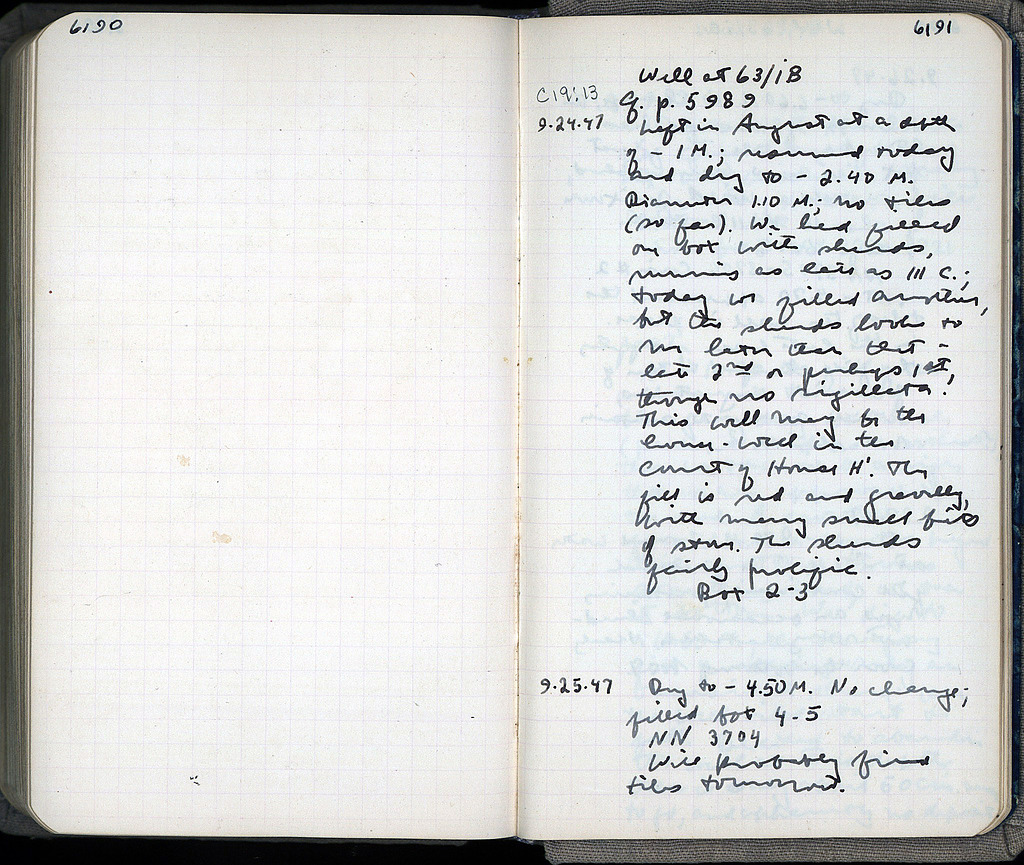 6190
6191
Well at 63/ΙΒ
C 19:13
Cf. p. 5989
9.24.47 Left in August at a depth
of - 1 M.; resumed today
and dug to - 2.40 M.
Diameter 1.10 M.; no tiles
(so far). We had filled
one box with sherds,
running as late as III C.;
today we filled another,
but the sherds look to
me later than that -
late 2nd or perhaps 1st,
though no sigillata.
This well may be the
house-well in the
Court of House H'. The
fill is red and gravelly,
with many small bits
of stone. The sherds
fairly prolific.
Box 2-3
9.25.47 Dug to - 4.50 M. No change;
filled box 4-5
NN 3704
Will probably find
tiles tomorrow.